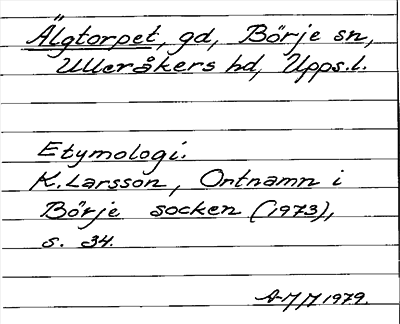 Älgtorpet, gd, Börje sn,
Ulleråkers hd, Upps.l.
Etymologi:
K. Larsson, Ortnamn i
Börje socken (1973),
s. 34.
1979.